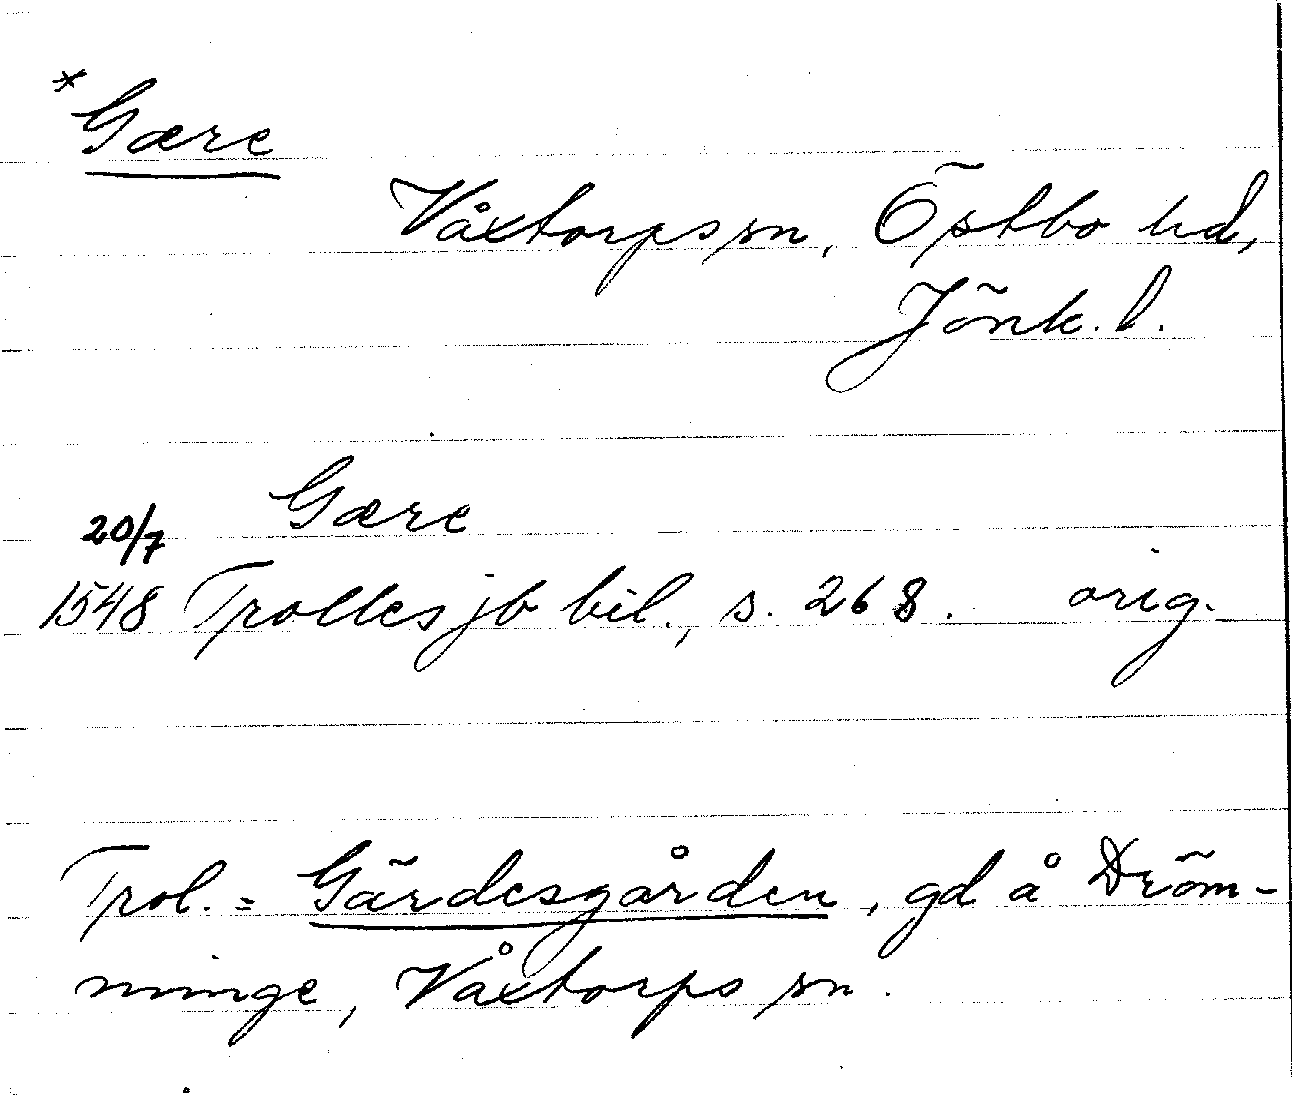 *Gære
Våxtorps sn, Östbo hd,
Jönk. l.
20/7 Gære
1548 Trolles jb bil., s. 268. orig.
Trol. = Gärdesgården, gd å Dröm-
minge, Våxtorps sn.